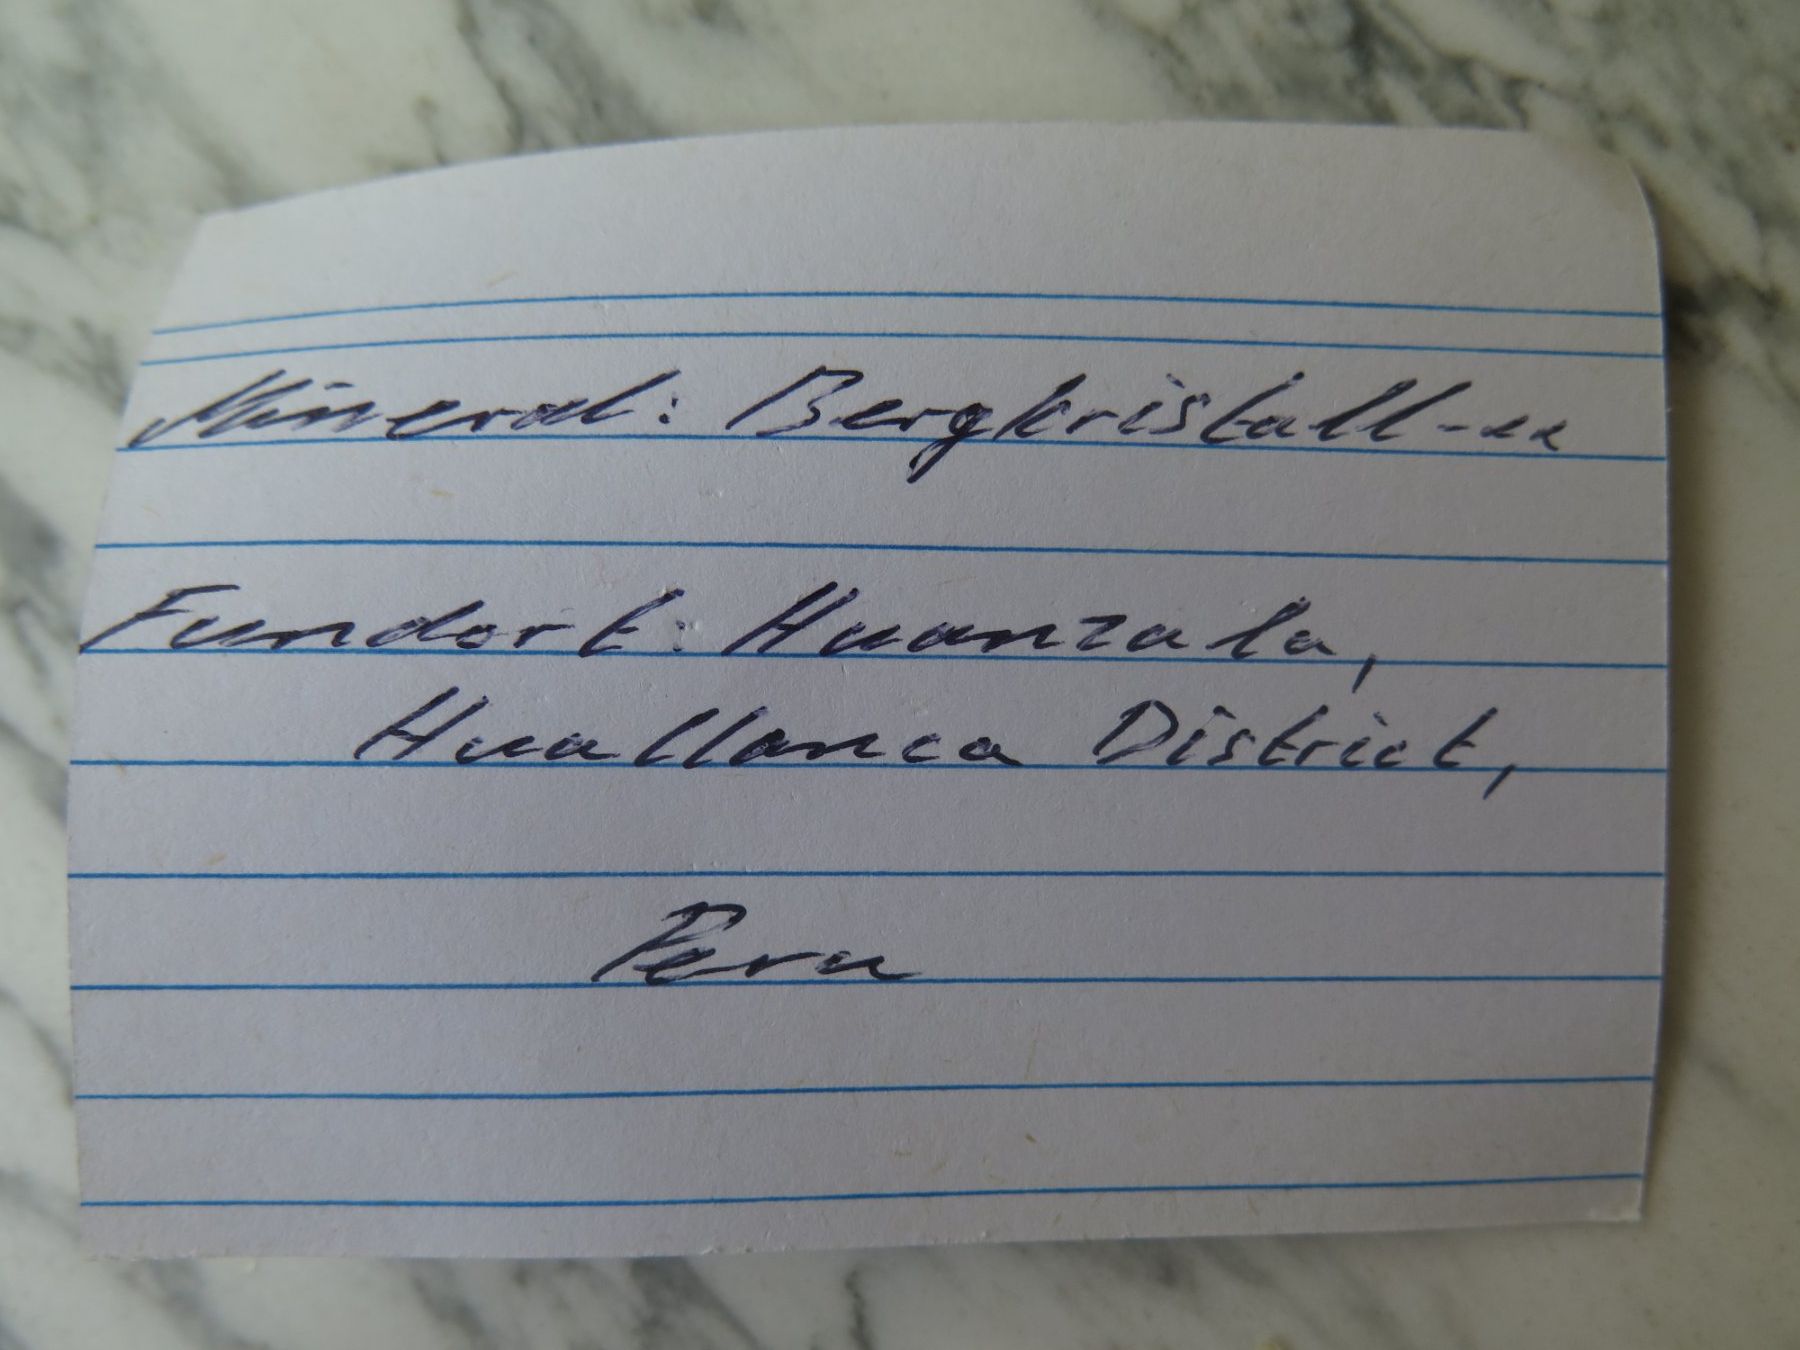 Mineral: Bergkristall-xx
Fundort: Huanzala,
Huallanca District,
Peru